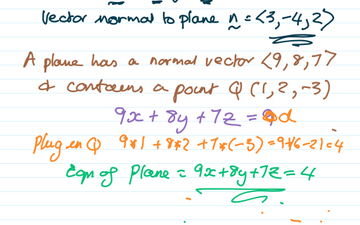 Vector normal to plane n = <3, -4, 2>
A plane has a normal vector <9, 8, 7>
& contains a point Q (1, 2, -3)
9x + 8y + 7z = d
Plug in Q 9*1 + 8*2 + 7*(-3) = 9+16-21=4
Eqn of Plane = 9x+8y+7z = 4